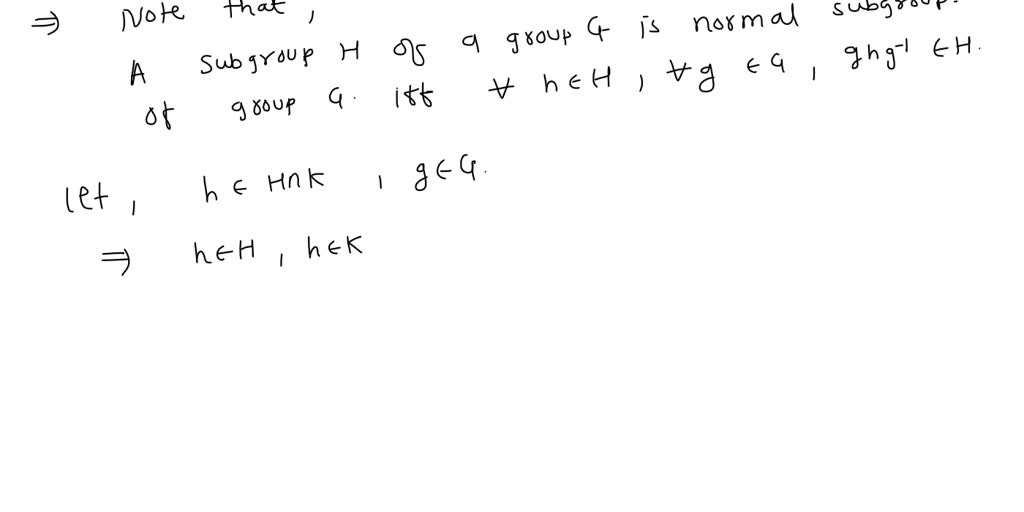 ⇒ Note that,
A subgroup H of a group G is normal subgroup.
of group G. iff ∀ h∈H, ∀g ∈ G, ghg⁻¹ ∈ H.
let, h ∈ H∩K, g∈G.
⇒ h∈H, h∈K